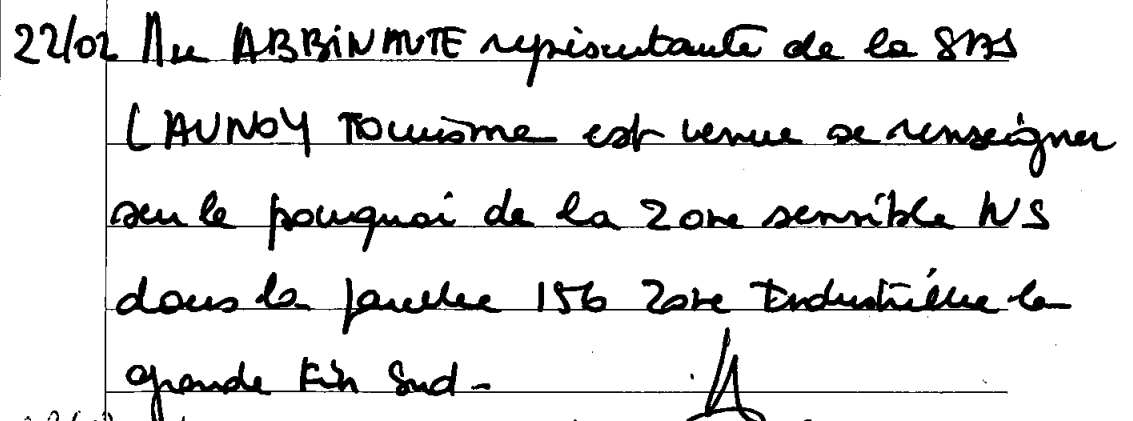 22/02 Mme ABBINANTE représentante de la SAS
LAUNOY Tourisme est venue se renseigner
sur le pourquoi de la Zone sensible NS
dans la parcelle 156 Zone Industrielle la
grande Fin Sud-